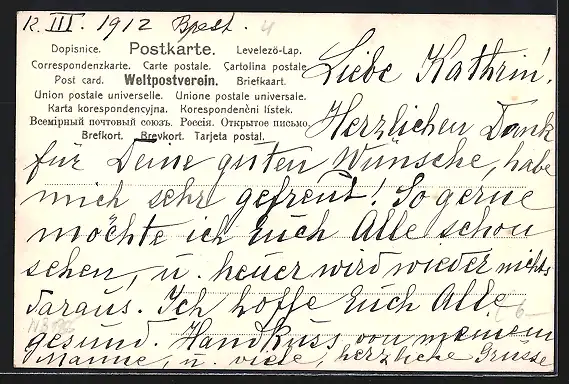 12. III. 1912 Bpest.
Dopisnice. Postkarte. Levelező-Lap.
Correspondenzkarte. Carte postale. Cartolina postale
Post card. Weltpostverein. Briefkaart.
Union postale universelle. Unione postale universale.
Karta korespondencyjna. Korespondenční lístek.
Всемірный почтовый союзъ. Россія. Открытое письмо.
Brefkort. Brevkort. Tarjeta postal.
Liebe Kathrin!
Herzlichen Dank
für Deine guten Wünsche, habe
mich sehr gefreut! So gerne
möchte ich Euch Alle schon
sehen, u. heuer wird wieder nichts
daraus. Ich hoffe Euch Alle
gesund. Handkuss von meinem
Manne, u. viele, herzliche Grüsse